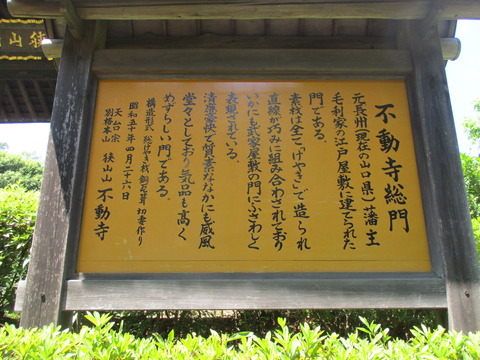 不動寺総門
元長州(現在の山口県)藩主
毛利家の江戸屋敷に建てられた
門である。
素材は全て「けやき」で造られ
直線が巧みに組み合わされており
いかにも武家屋敷の門にふさわしく
表現されている。
清凛豪快で質素ななかにも威風
堂々としており気品も高く
めずらしい門である。
構造形式 総けやき材 銅瓦葺 切妻作り
昭和五十年四月二十六日
天台宗
別格本山 狭山山 不動寺
狭山